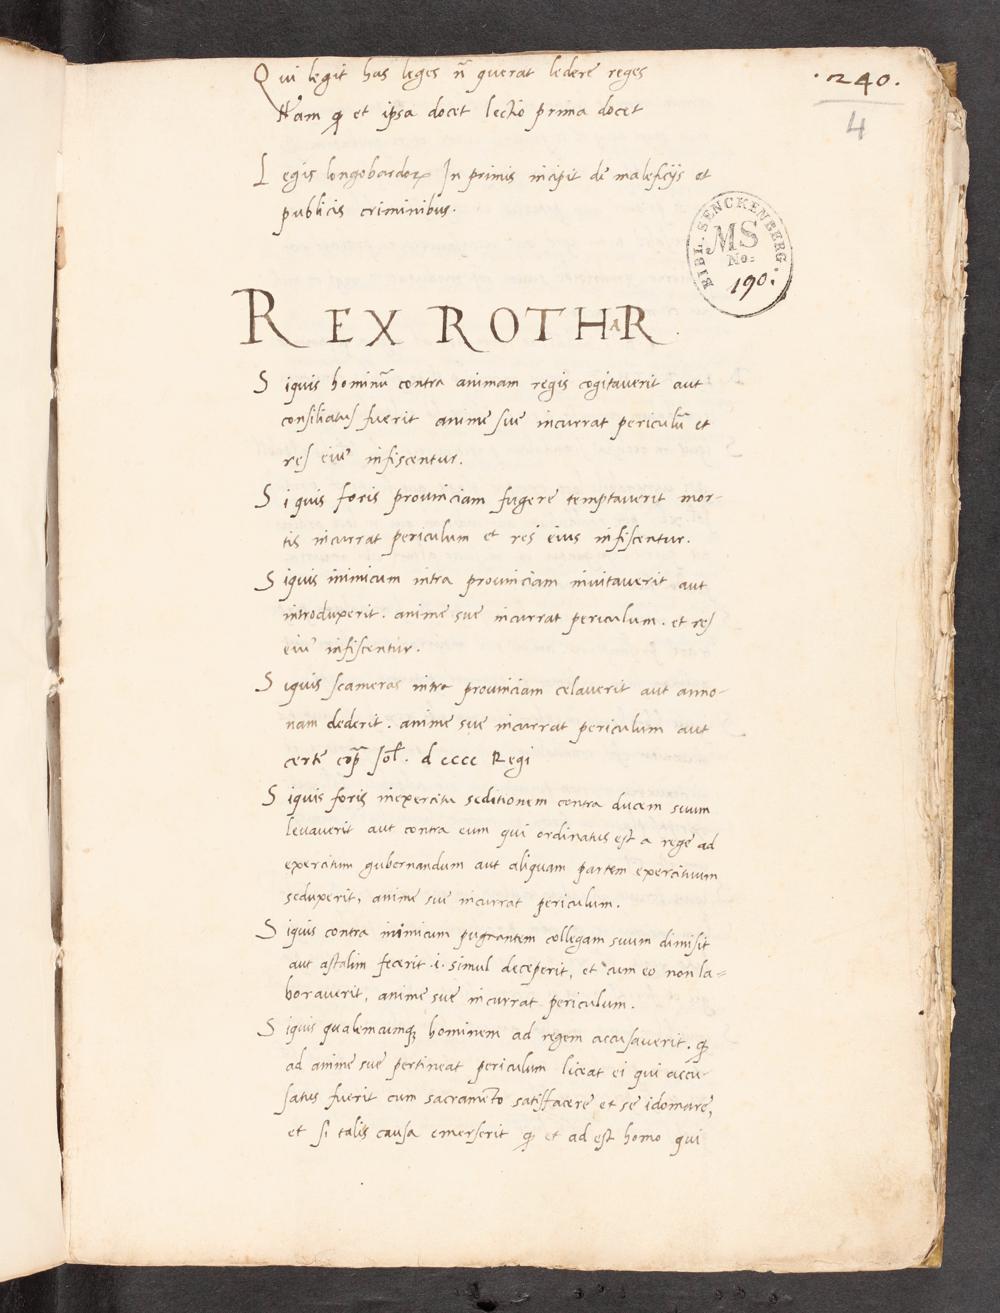 ·240·
4
Qui legit has leges nō querat ledere reges
Nam ꝙ et ipsa docet lectio prima docet
Legis longobardoꝝ In primis incipit de maleficijs et
publicis criminibus.
BIBL. SENCKENBERG.
MS
No:
190.
REX ROTHaR.
Siquis hominū contra animam regis cogitaverit aut
consiliatus fuerit anime sue incurrat periculū et
res eius infiscentur.
Siquis foris provinciam fugere temptaverit mor-
tis incurrat periculum et res eius infiscentur.
Siquis inimicum intra provinciam invitaverit aut
introduxerit. anime sue incurrat periculum. et res
eius infiscentur.
Siquis scameras intra provinciam celaverit aut anno-
nam dederit. anime sue incurrat periculum aut
certe cōp̄ sol. dcccc Regi
Siquis foris inexercitu seditionem contra ducem suum
levaverit aut contra eum qui ordinatus est a rege ad
exercitum gubernandum aut aliquam partem exercituum
seduxerit, anime sue incurrat periculum.
Siquis contra inimicum pugnantem collegam suum dimisit
aut astalim fecerit .i. simul deceperit, et cum eo non la=
boraverit, anime sue incurrat periculum.
Siquis qualemcumqꝫ hominem ad regem accusaverit. ꝙ
ad anime sue pertineat periculum liceat ei qui accu-
satus fuerit cum sacramēto satisfacere et se idomare,
et si talis causa emerserit ꝙ et ad est homo qui